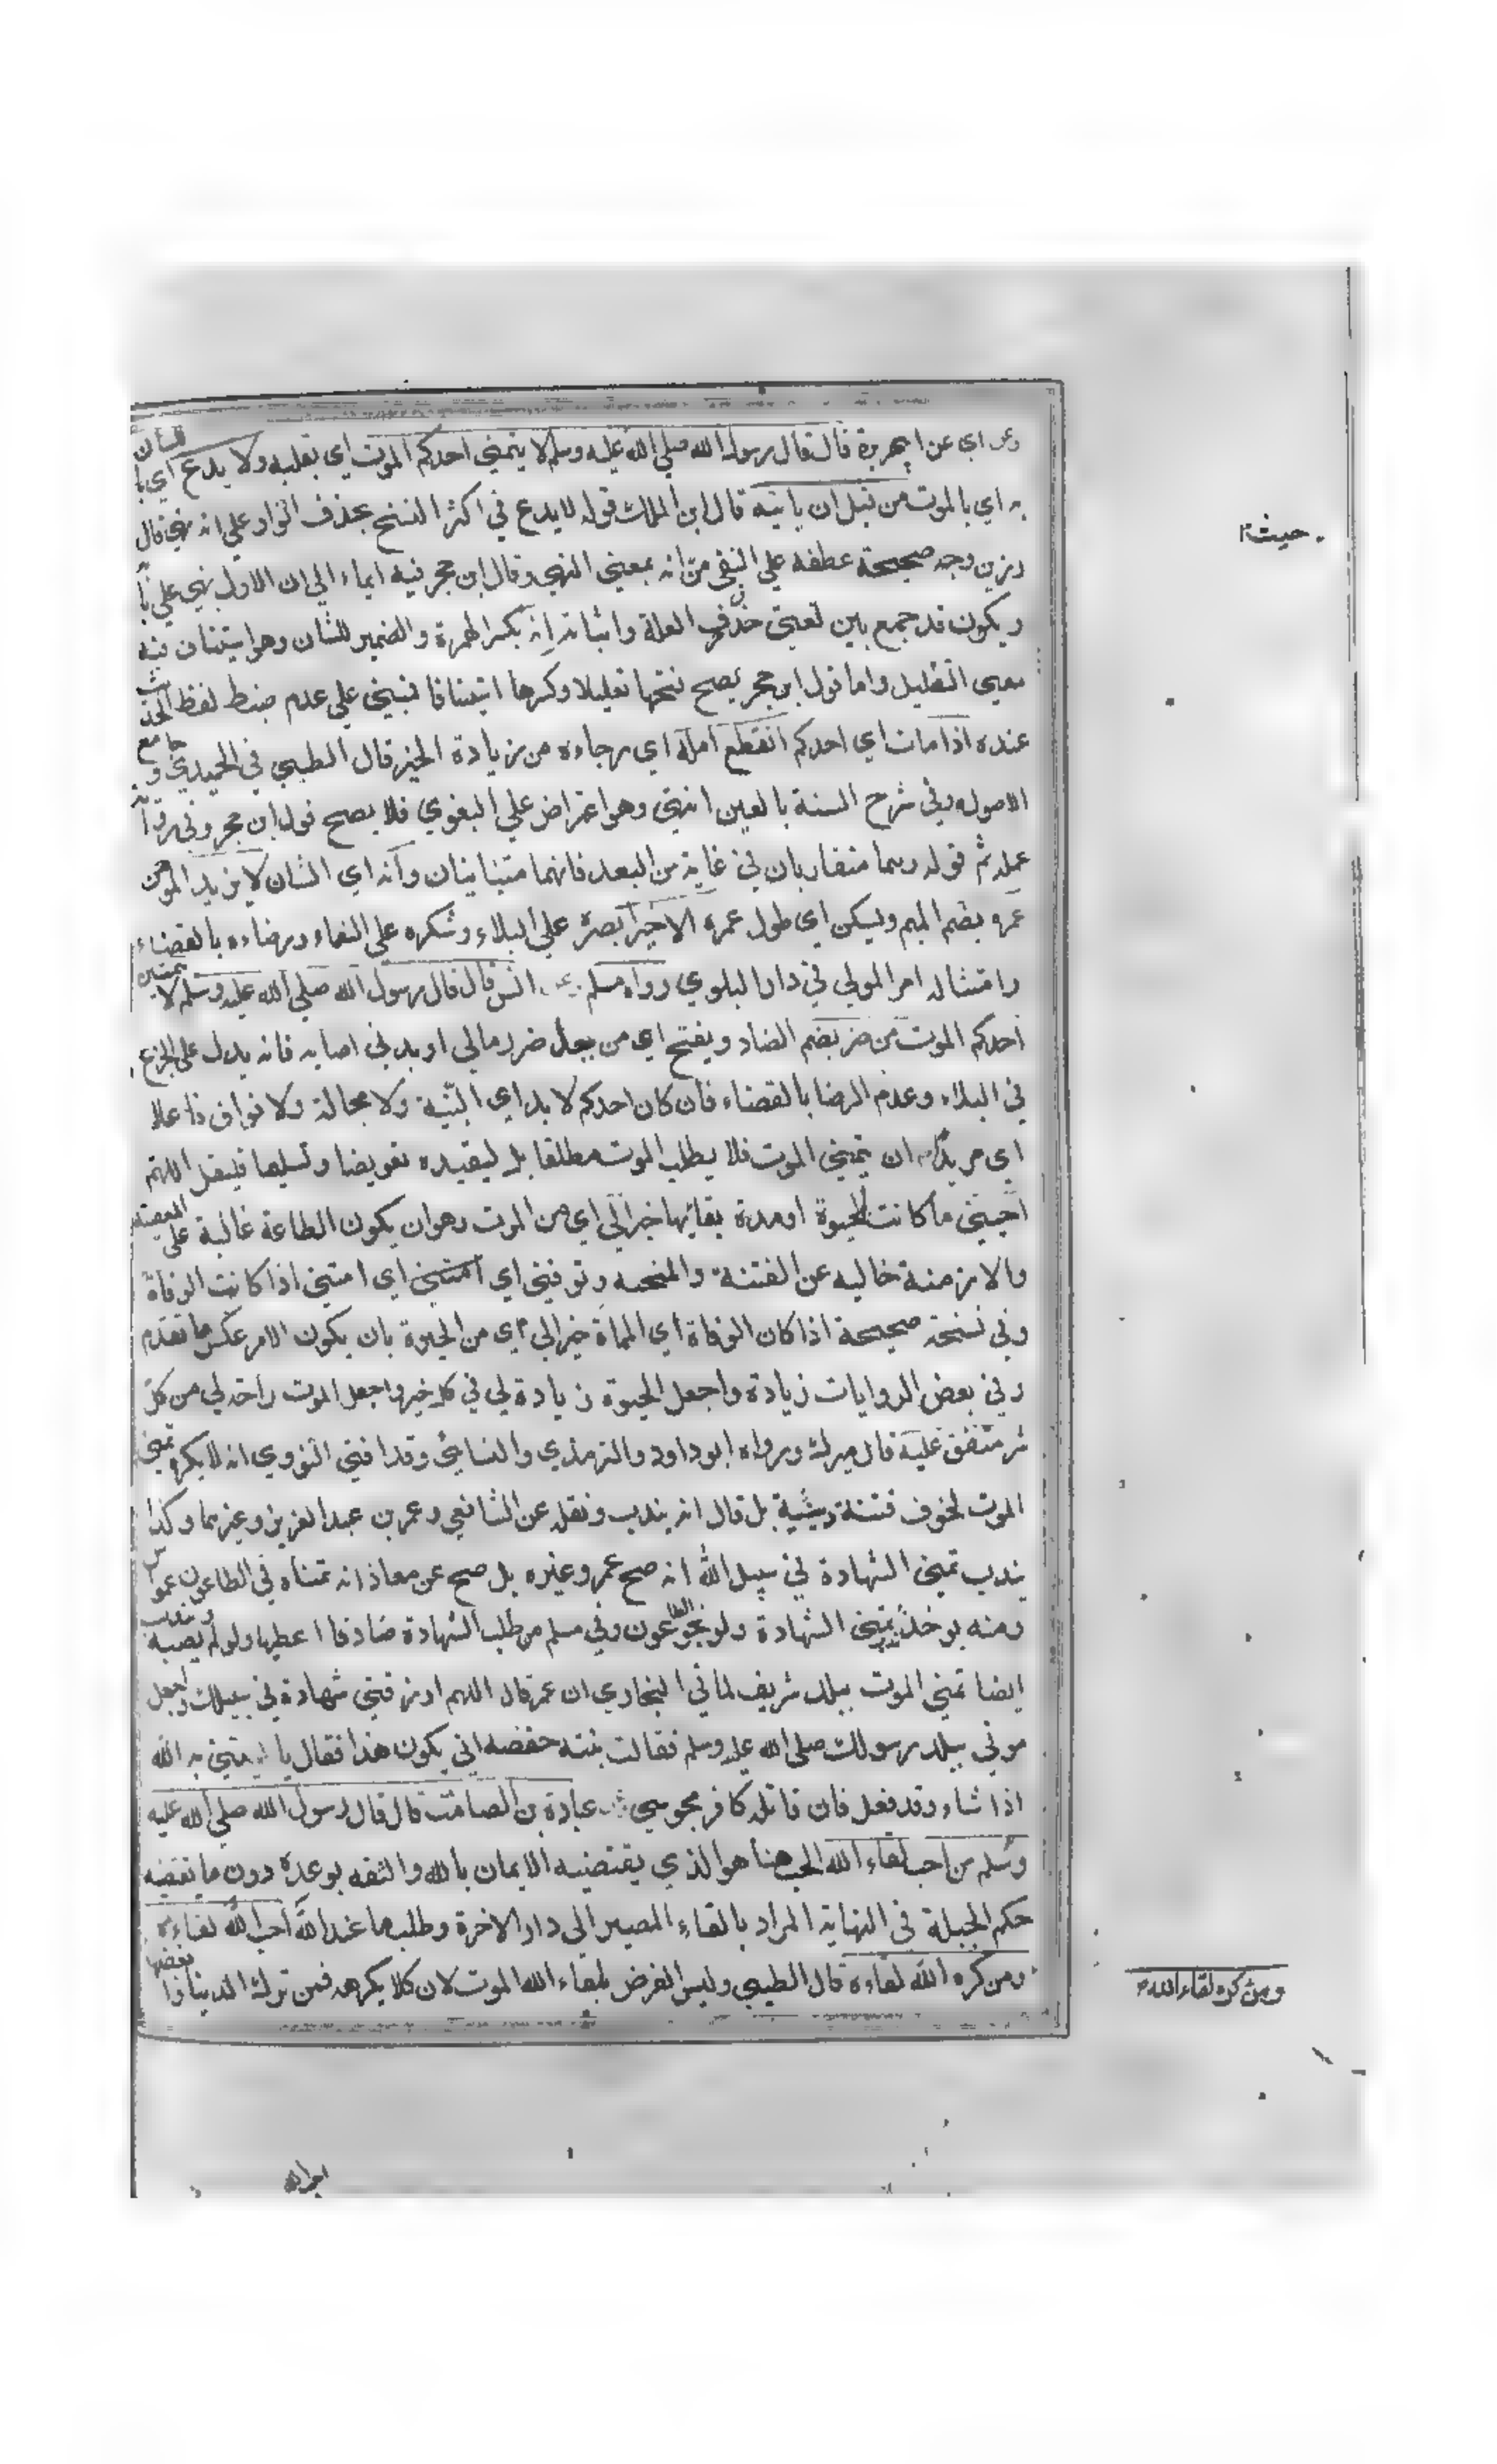 وعنه اي عن ابي هريرة قال قال رسول الله صلي الله عليه وسلم لا يتمني احدكم الموت اي بقلبه ولا يدع اي باللسان
به اي بالموت من قبل ان ياتيه قال ابن الملك قوله لا يدع في اكثر النسخ بحذف الواو علي انه نهي قال
زين وجه صحيحة عطفه علي النفي من انه بمعني النهي وقال ابن حجر فيه ايماء الي ان الاول نهي علي بابه
ويكون قد جمع بين لغتي حذف حرف العلة واثباته انه بكسر الهمزة والضمير للشان وهو استيناف فيه
معني التعليل واما قول ابن حجر يصح فتحها تعليلا وكسرها استينافا فمبني علي عدم ضبط لفظ الحديث
عنده اذا مات اي احدكم انقطع امله اي رجاءه من زيادة الخير قال الطيبي في الحميدي وجامع
الاصول وفي شرح السنة بالعين انتهي وهو اعتراض علي البغوي فلا يصح قول ابن حجر وفي رواية
عمله ثم قوله وهما متقاربان في غاية من البعد فانهما متباينان وانه اي الشان لا يزيد المومن
عمره بضم الميم ويسكن اي طول عمره الا خيرا بصبره علي البلاء وشكره علي النعماء ورضاءه بالقضاء
وامتثاله امر المولي في دار البلوي رواه مسلم وعن انس قال قال رسول الله صلي الله عليه وسلم لا يتمنين
احدكم الموت من ضر بضم الضاد ويفتح اي من اجل ضرر مالي او بدني اصابه فانه يدل علي الجزع
في البلاء وعدم الرضا بالقضاء فان كان احدكم لا بد اي البتة ولا محالة ولا فراق فاعلا
اي مريدا ان يتمني الموت فلا يطلب الموت مطلقا بل ليقيده تفويضا وتسليما فليقل اللهم
احييني ما كانت الحيوة او مدة بقائها خيرا لي اي من الموت وهو ان يكون الطاعة غالبة علي المعصية
والازمنة خاليه عن الفتنة والمحنه وتوفني اي امتني اذا كانت الوفاة
وفي نسخة صحيحة اذا كان الوفاة اي المماة خيرا لي اي من الحيوة بان يكون الامر عكس ما تقدم
وفي بعض الروايات زيادة واجعل الحيوة زيادة لي في كل خير واجعل الموت راحة لي من كل
شر متفق عليه قال ميرك ورواه ابو داود والترمذي والنسايئ وقد افتي النووي انه لا يكره تمني
الموت لخوف فتنة دينية بل قال انه يندب ونقل عن الشافعي وعمر بن عبد العزيز وغيرهما وكذا
يندب تمني الشهادة في سبيل الله انه صح عمر وغيره بل صح عن معاذ انه تمناه في الطاعون عمواس
ومنه يوخذ تمني الشهادة ولو بنحو الطاعون وفي مسلم من طلب الشهادة صادقا اعطيها ولو لم يصبه ويندب
ايضا تمني الموت ببلد شريف لما في البخاري ان عمر قال اللهم ارزقني شهادة في سبيلك واجعل
موتي ببلد رسولك صلي الله عليه وسلم فقالت بنته حفصه اني يكون هذا فقال ياتيني به الله
اذا شاء وقد فعل فان قاتله كافر مجوسي وعن عبادة بن الصامت قال قال رسول الله صلي الله عليه
وسلم من احب لقاء الله الحب هنا هو الذي يقتضيه الايمان بالله والثقه بوعده دون ما يقتضيه
حكم الجبلة في النهاية المراد بالقاء المصير الي دار الاخرة وطلب ما عند الله احب الله لقاءه
ومن كره الله لقاءه قال الطيبي وليس الغرض بلقاء الله الموت لان كلا يكرهه فمن ترك الدنيا وابغضها
حيث
ومن كره لقاء الله